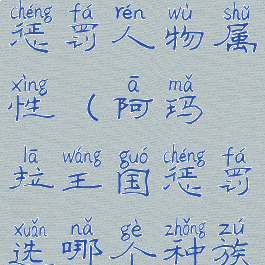 chéng fá rén wù shǔ
惩罚人物属
xìng ā mǎ
性（阿玛
lā wáng guó chéng fá
拉王国惩罚
xuǎn nǎ gè zhǒng zú
选哪个种族